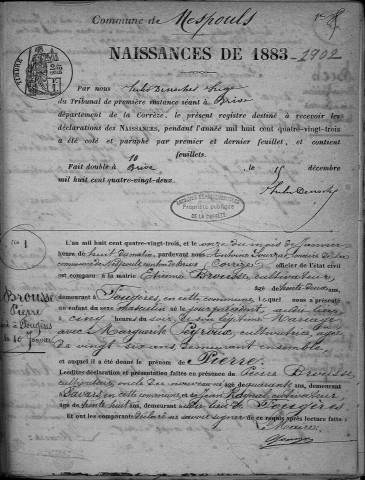 Commune de Nespouls
1er
NAISSANCES DE 1883-1902
TIMBRE
Par nous Jules Juge
du Tribunal de première instance séant à Brive
département de la Corrèze, le présent registre destiné à recevoir les
déclarations des NAISSANCES, pendant l'année mil huit cent quatre-vingt-trois
a été coté et paraphé par premier et dernier feuillet, et contient
10 feuillets.
Fait double à Brive le 15 décembre
mil huit cent quatre-vingt-deux.
ARCHIVES DÉPARTEMENTALES
Propriété publique
DE LA CORRÈZE
No 1
Brousse
Pierre
né à Fougères
le 10 Janvier
L'an mil huit cent quatre-vingt-trois, et le onze du mois de Janvier
heure de huit du matin, pardevant nous Antoine maire de la
commune de Nespouls canton de Brive Corrèze officier de l'état civil
est comparu à la mairie Etienne Brousse cultivateur,
âgé de trente deux ans,
demeurant à Fougères, en cette commune, lequel nous a présenté
un enfant du sexe masculin né le jour précédent, au dit lieu
à cinq heures du soir de son légitime mariage
avec Marguerite Peyroux, cultivatrice, âgée
de vingt six ans, demeurant ensemble
et auquel il a été donné le prénom de Pierre.
Lesdites déclaration et présentation faites en présence de Pierre Brousse,
cultivateur, oncle du nouveau né âgé de quarante ans, demeurant
à en cette commune, et de Jean Raynal, cultivateur,
âgé de trente huit ans, demeurant au dit lieu de Fougères
Et ont les comparants déclaré ne savoir signer de ce requis après lecture faite
Le Maire,